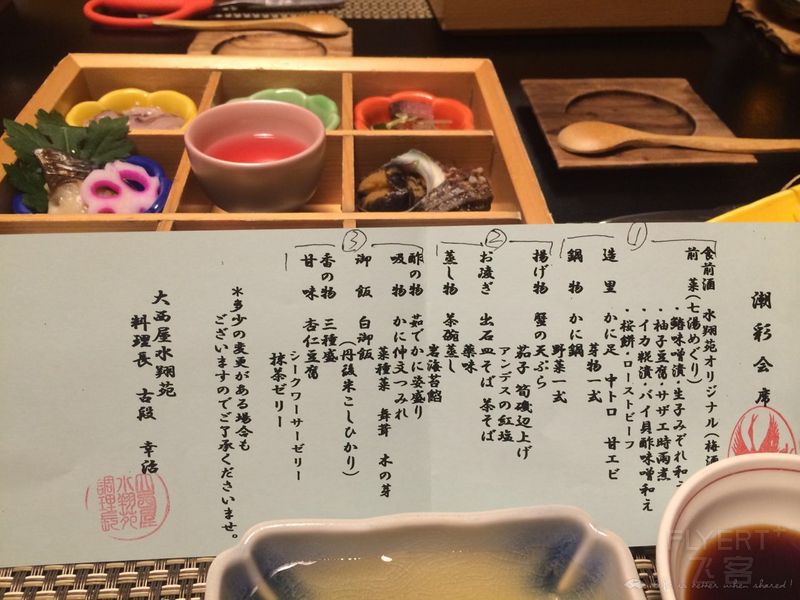 潮彩会席
食前酒 水翔苑オリジナル(梅酒
前菜(七湯めぐり)
・鰆味噌漬・生子みぞれ和え
・柚子豆腐・サザエ時雨煮
・イカ糀漬・バイ貝酢味噌和え
・桜餅・ローストビーフ
①
造里 かに足 中トロ 甘エビ
芽物一式
鍋物 かに鍋
野菜一式
揚げ物 蟹の天ぷら
茄子 筍磯辺上げ
アンデスの紅塩
②
お凌ぎ 出石皿そば 茶そば
薬味
蒸し物 茶碗蒸し
岩海苔餡
酢の物 茹でかに姿盛り
吸物 かに仲文つみれ
菜種菜 舞茸 木の芽
③
御飯 白御飯
(丹後米こしひかり)
香の物 三種盛
甘味 杏仁豆腐
シークワーサーゼリー
抹茶ゼリー
*多少の変更がある場合も
ございますのでご了承くださいませ。
大西屋水翔苑
料理長 古段 幸治
大西屋
水翔苑
調理長
FLYERT
飞客
is better when shared!